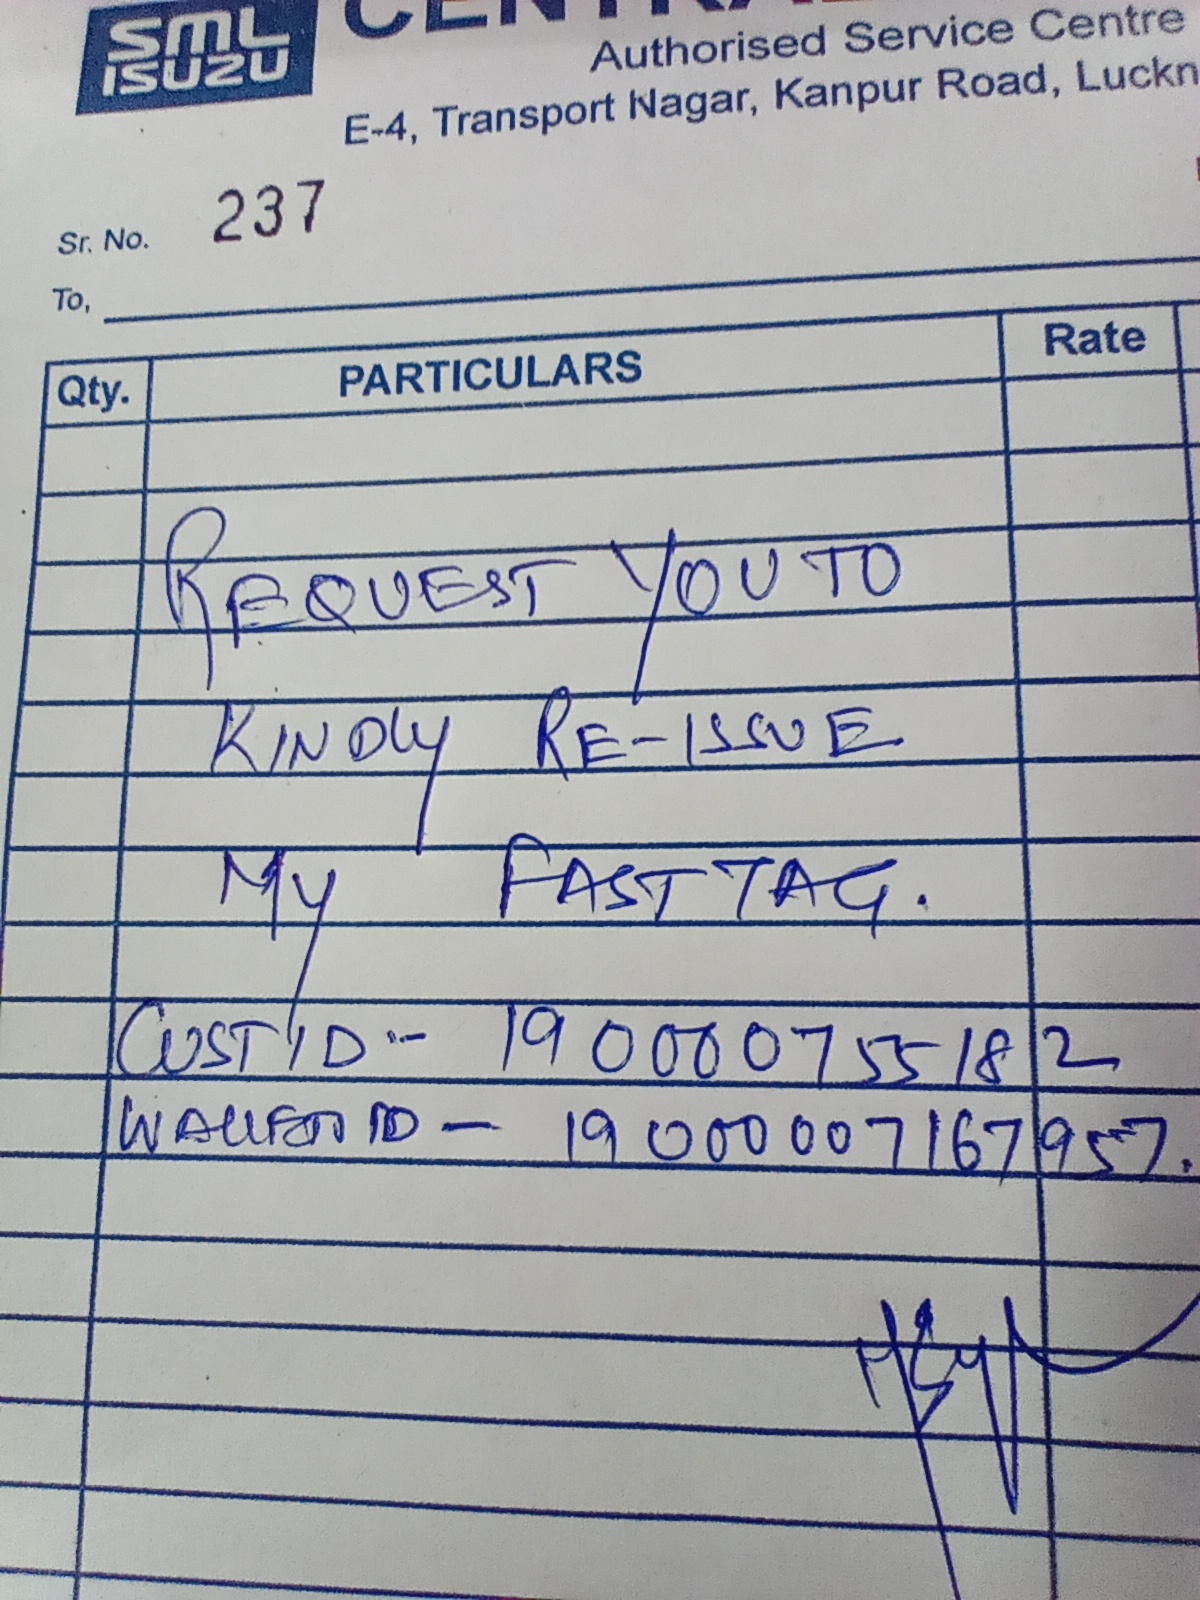 SML
ISUZU
Authorised Service Centre
E-4, Transport Nagar, Kanpur Road, Luckn
Sr. No. 237
To,
Qty. PARTICULARS Rate
REQUEST YOU TO
KINDLY RE-ISSUE
MY FAST TAG.
CUST ID :- 190000755182
ID - 19000007167957.